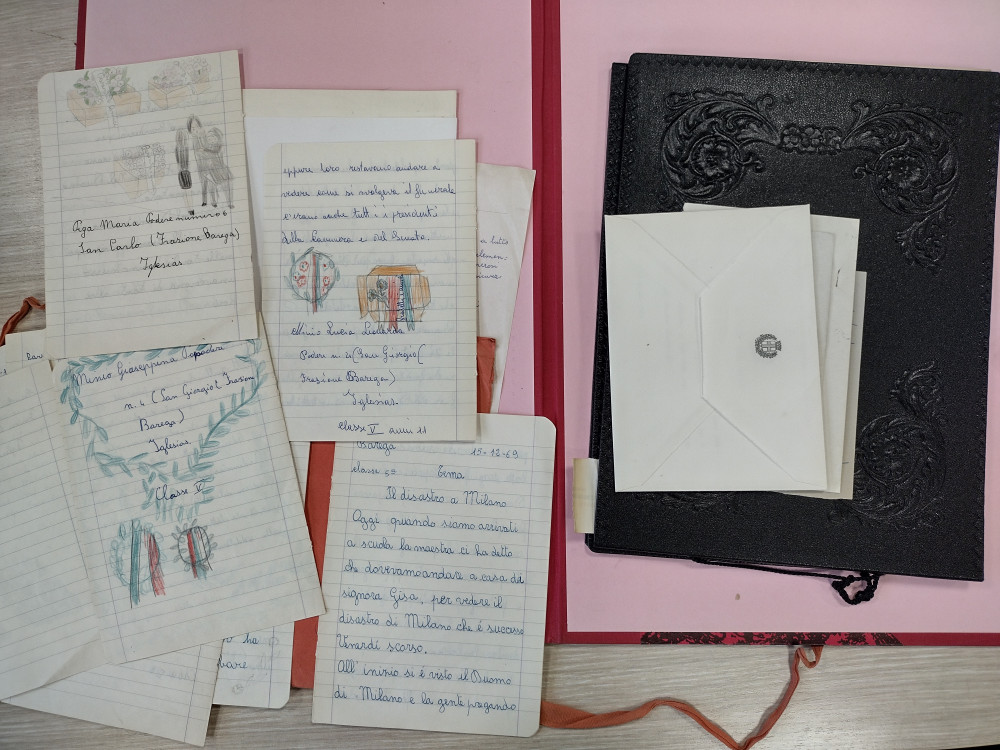 Piga Maria Podere numero 6
San Carlo (Frazione Barega)
Iglesias
eppure loro restavano andare a
vedere come si svolgeva il funerale
c'erano anche tutti i presidenti
della Camera e del Senato.
Minio Lucia Liciarda
Podere n. 4 (San Giorgio (
Frazione Barega)
Iglesias.
classe V anni 11
Minio Giuseppina Popodera
n. 4 (San Giorgio( Frazione
Barega)
Iglesias
Classe V
Barega 15-12-69
classe 5ª Tema
Il disastro a Milano
Oggi quando siamo arrivate
a scuola la maestra ci ha detto
che dovevamo andare a casa di
signora Gisa, per vedere il
disastro di Milano che é successo
Venerdi scorso.
All'inizio si é visto il Duomo
di Milano e la gente pregando
a tutto
ha
bare